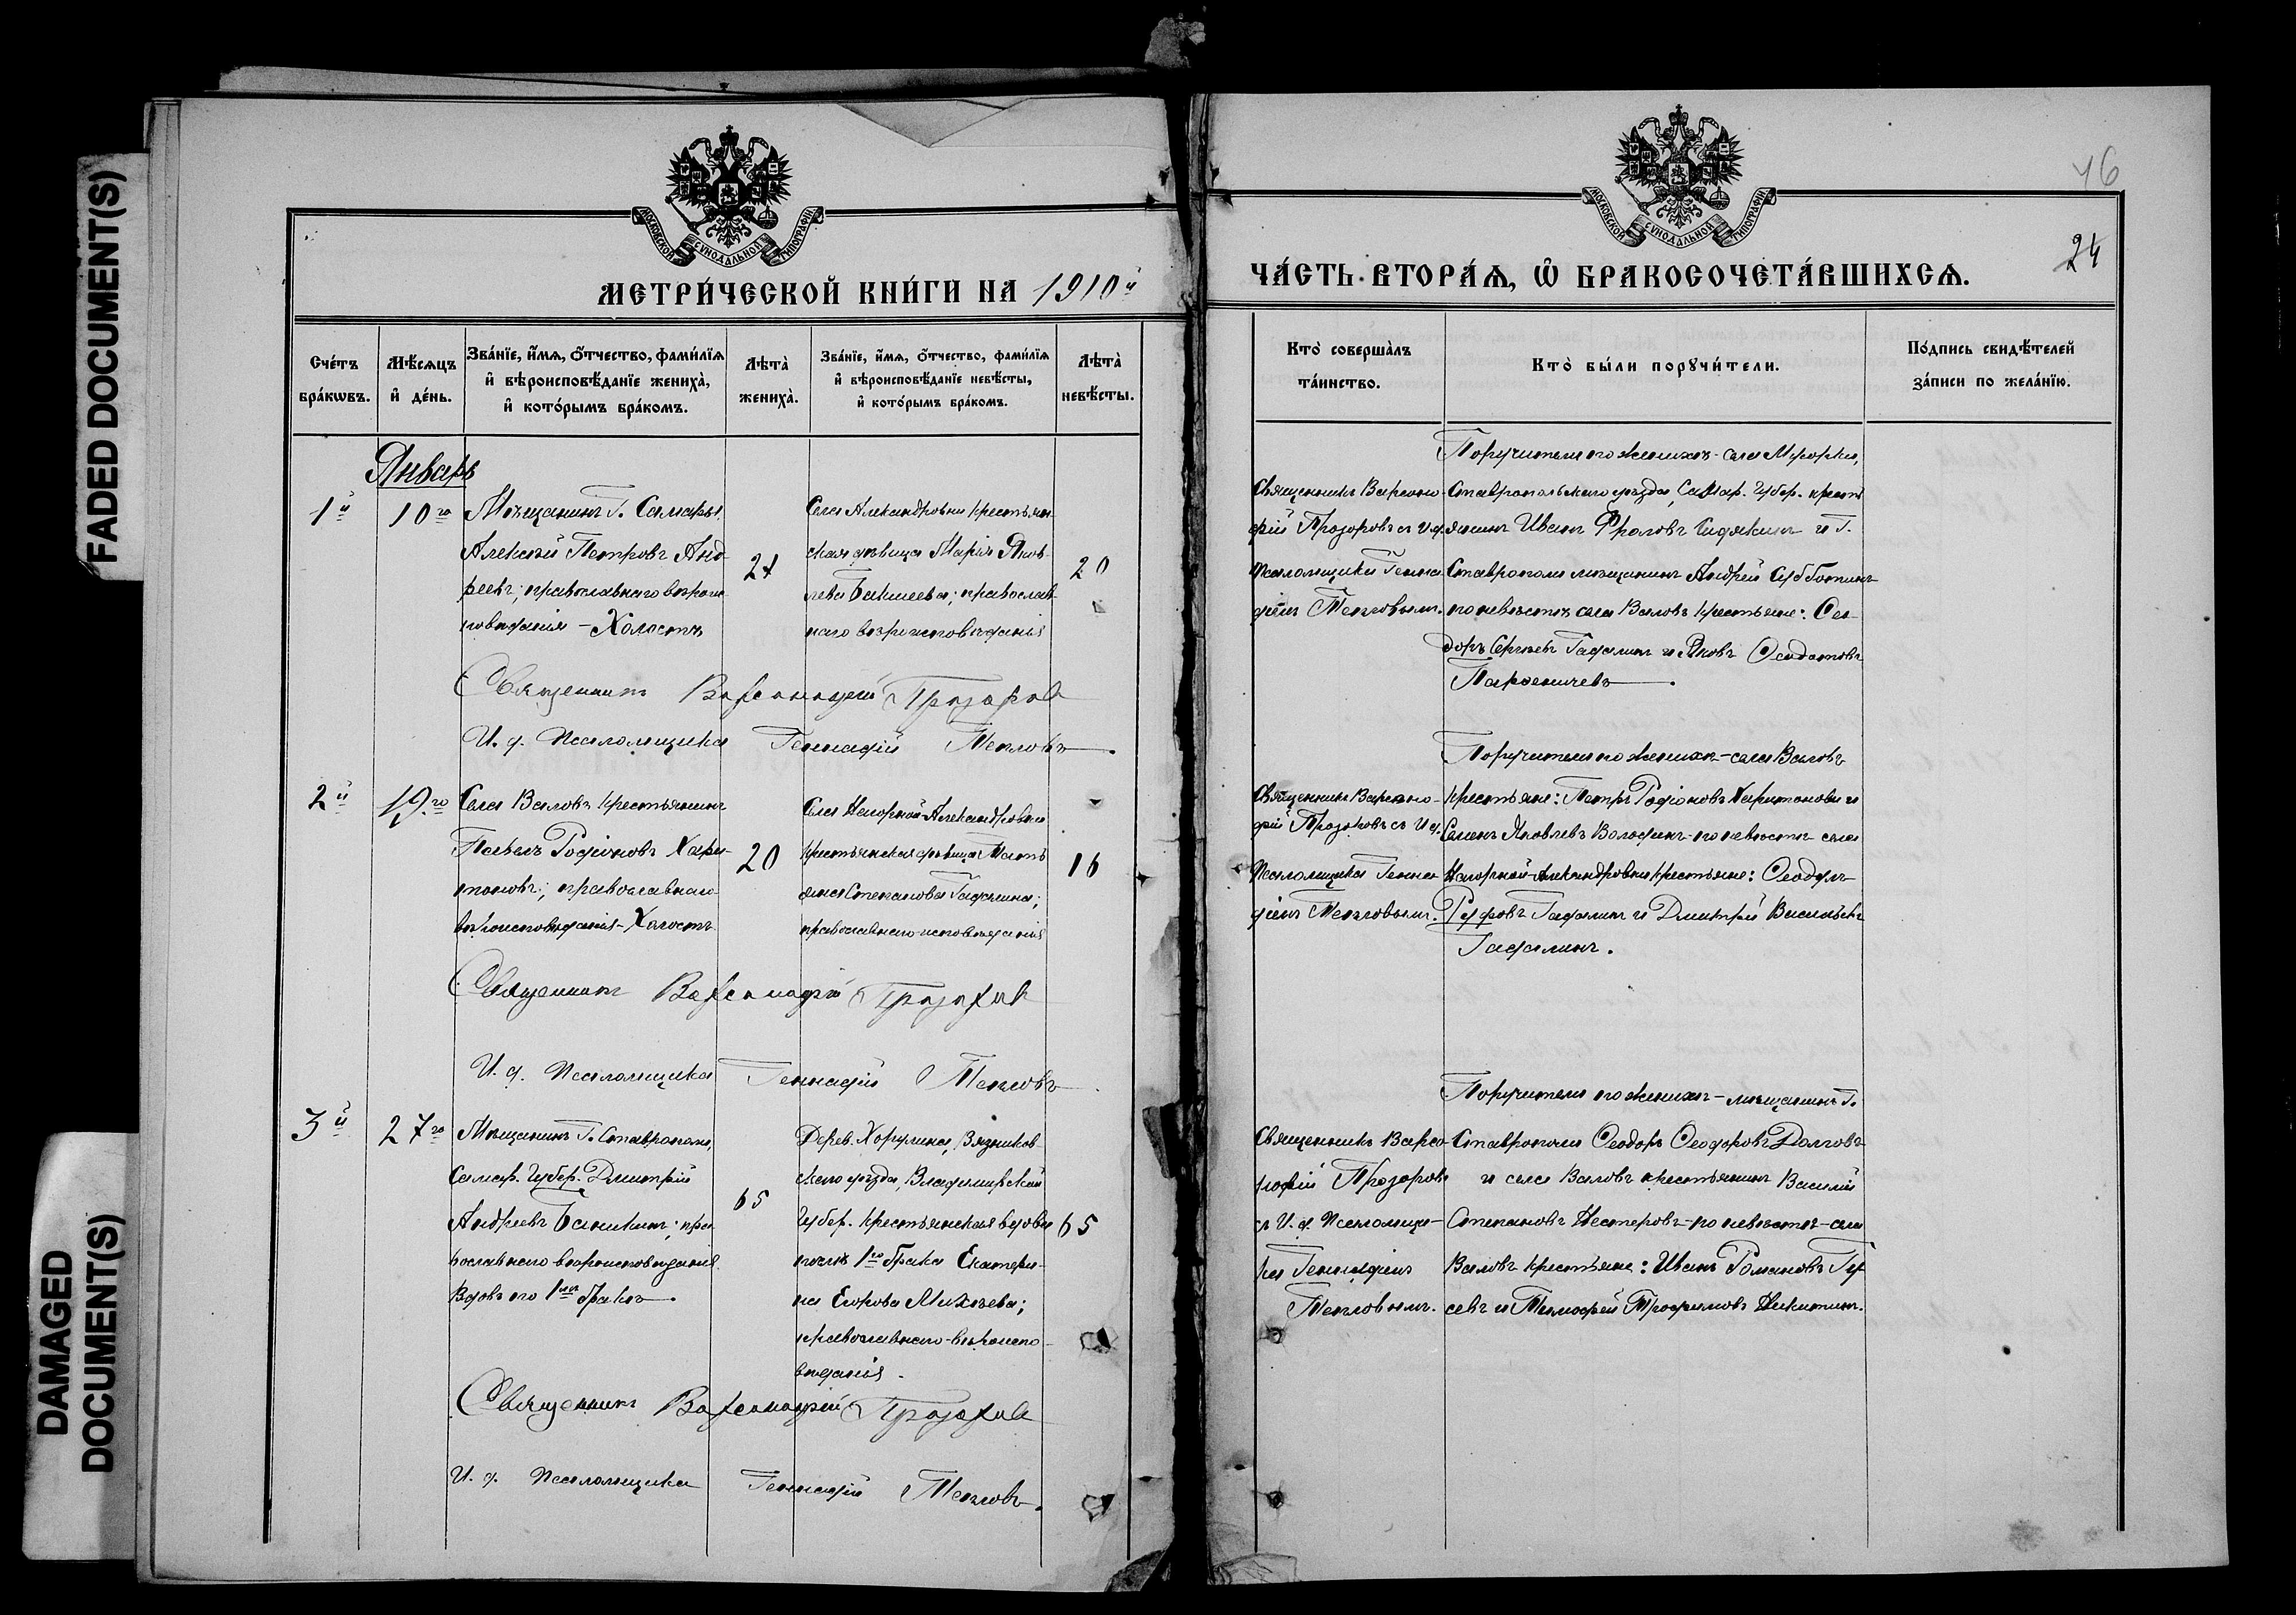 FADED DOCUMENT(S)
DAMAGED
DOCUMENT(S)
МОСКОВСКОЙ СѴНОДАЛЬНОЙ ТИПОГРАФІИ
МЕТРИ́ЧЕСКОЙ КНИ́ГИ НА 1910й
Сче́тъ
бра́кωвъ.
Мѣ́сяцъ
и҆ де́нь.
Зва́нїе, и҆́мѧ, ѻ҆́тчество, фами́лїѧ
и҆ вѣроисповѣ́данїе жениха̀,
и҆ кото́рымъ бра́комъ.
Лѣта̀
жениха̀.
Зва́нїе, и҆́мѧ, ѻ҆́тчество, фами́лїѧ
и҆ вѣроисповѣ́данїе невѣ́сты,
и҆ кото́рымъ бра́комъ.
Лѣта̀
невѣ́сты.
Январь
1й
10го
Мѣщанинъ г. Самары,
Алексѣй Петровъ Анд-
реевъ; православнаго вѣроис-
повѣданія - Холостъ
21
Села Александровки крестьян-
ская дѣвица Марія Яков-
лева Бакшеева; православ-
наго вѣроисповѣданія
20
Священникъ Варсонофій Прозоровъ
И. д. Псаломщика Геннадій Тепловъ.
2й
19.го
Села Валовъ крестьянинъ
Павелъ Родіоновъ Хари-
тоновъ; православнаго
вѣроисповѣданія - Холостъ
20
Села Нагорной-Александровки
крестьянская дѣвица Тать-
яна Степанова Гадалина;
православнаго исповѣданія
16
Священникъ Варсонофій Прозоровъ
И. д. Псаломщика Геннадій Тепловъ
3й
27го
Мѣщанинъ г. Ставрополя,
Самар. Губер. Дмитрій
Андреевъ Баникинъ; пра-
вославнаго вѣроисповѣданія.
Вдовъ по 1мъ бракѣ.
65
Дерев. Хорулина, Вязников-
скаго уѣзда, Владимирской
Губер. крестьянская вдова
послѣ 1го брака Екатери-
на Егорова Михѣева;
православнаго-вѣроиспо-
вѣданія.
65
Священникъ Варсонофій Прозоровъ
И. д. Псаломщика Геннадій Тепловъ.
МОСКОВСКОЙ СѴНОДАЛЬНОЙ ТИПОГРАФІИ
46
24
ЧА́СТЬ ВТОРА́Ѧ, Ѽ БРАКОСОЧЕТА́ВШИХСѦ.
Кто̀ соверша́лъ
та́инство.
Кто̀ бы́ли порꙋчи́тели.
По́дпись свидѣ́телей
за́писи по жела́нїю.
Священникъ Варсоно-
фій Прозоровъ съ И. д.
псаломщика Генна-
діемъ Тепловымъ.
Поручители по женихѣ - села Мусорки,
Ставропольскаго уѣзда, Самар. Губер. кресть-
янинъ Иванъ Фроловъ Сидякинъ и г.
Ставрополя мѣщанинъ Андрей Субботинъ
по невѣстѣ села Валовъ крестьяне: Ѳео-
доръ Сергѣевъ Гадалинъ и Яковъ Ѳеодотовъ
Парѳеничевъ.
Священникъ Варсоно-
фій Прозоровъ съ И. д.
Псаломщика Генна-
діемъ Тепловымъ.
Поручители по женихѣ - села Валовъ
крестьяне: Петръ Родіоновъ Харитоновъ и
Семенъ Яковлевъ Володинъ - по невѣстѣ села
Нагорной-Александровки крестьяне: Ѳеодулъ
Руфовъ Гадалинъ и Дмитрій Васильевъ
Гадалинъ.
Священникъ Варсо-
нофій Прозоровъ
съ И. д. Псаломщи-
ка Геннадіемъ
Тепловымъ.
Поручители по женихѣ - мѣщанинъ г.
Ставрополя Ѳеодоръ Ѳеодоровъ Долговъ
и села Валовъ крестьянинъ Василій
Степановъ Нестеровъ - по невѣстѣ - села
Валовъ крестьяне: Иванъ Романовъ Гу-
севъ и Тимофей Трофимовъ Никитинъ.